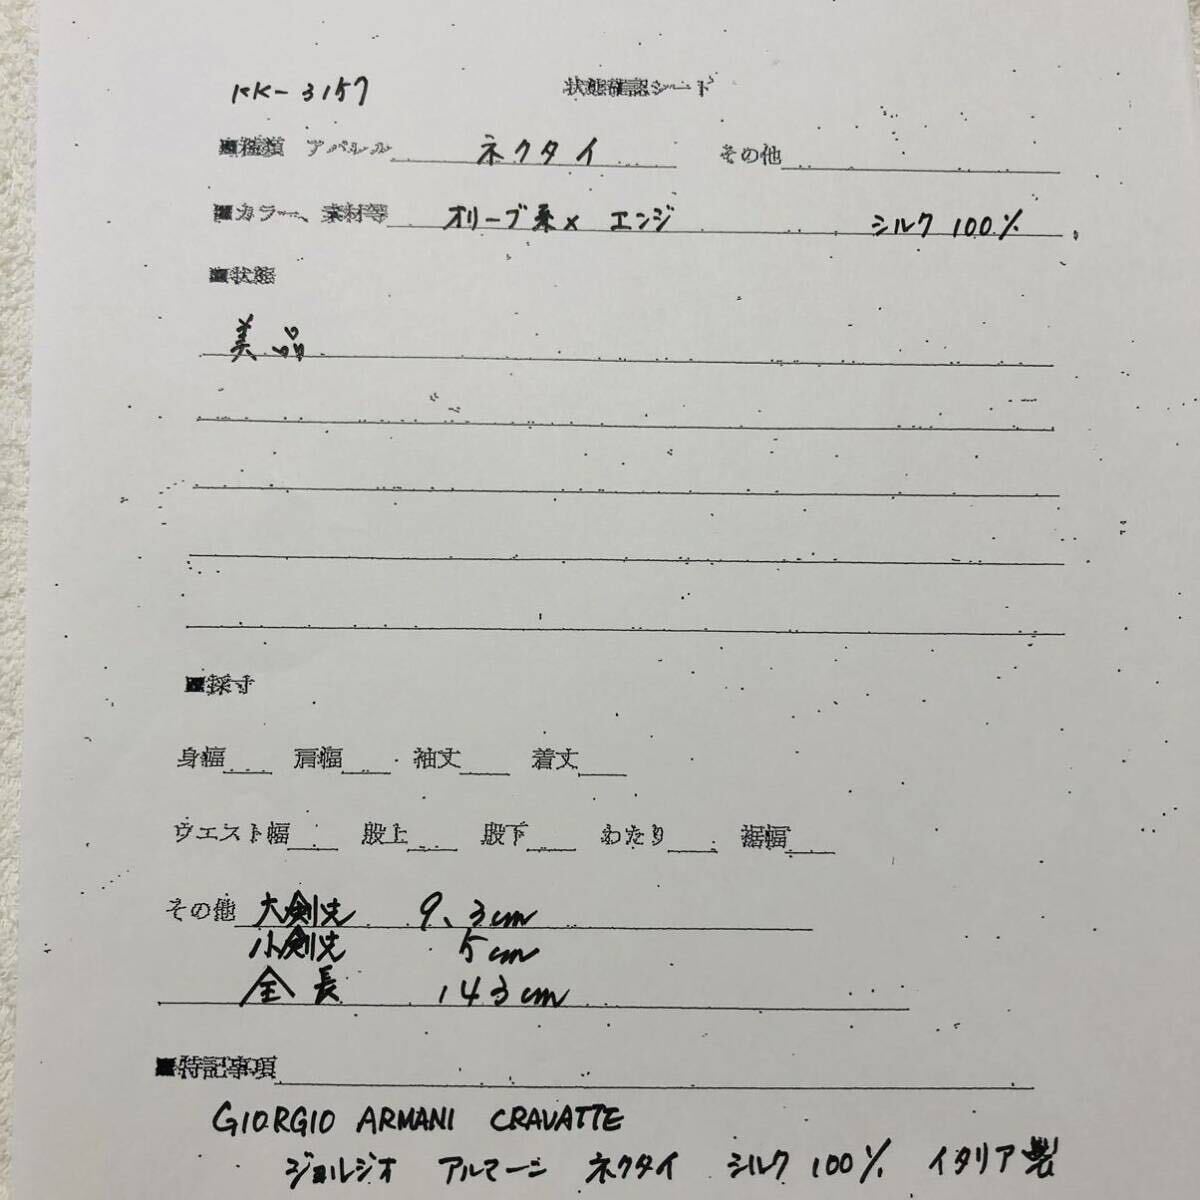 KK-3157 状態確認シート
■種類 アパレル ネクタイ その他
■カラー、素材等 オリーブ系× エンジ シルク 100%
■状態
美品
■採寸
身幅 肩幅 袖丈 着丈
ウエスト幅 股上 股下 わたり 裾幅
その他 大剣先 9.3cm
小剣先 5cm
全長 143cm
■特記事項
GIORGIO ARMANI CRAVATTE
ジョルジオ アルマーニ ネクタイ シルク 100% イタリア製